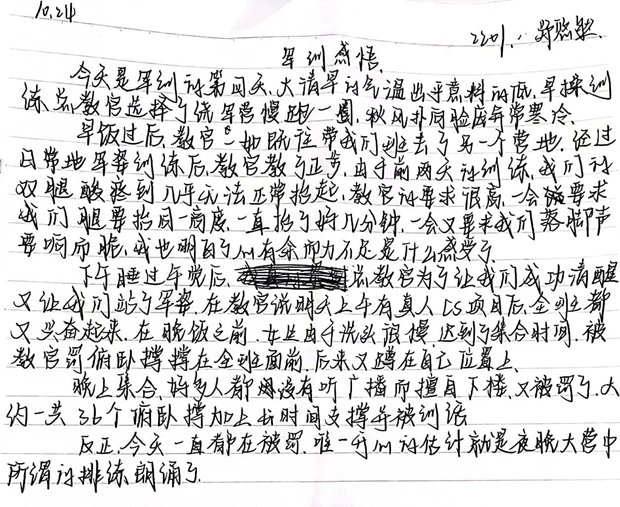 10.24
2201.
军训感悟.
今天是军训的第四天,大清早的气温出乎意料的低,早操训
练总教官选择了绕军营慢跑一圈,秋风扑向脸庞异常寒冷.
早饭过后,教官一如既往带我们班去了另一个营地.经过
日常地军姿训练后,教官教了正步,由于前两天的训练,我们的
双腿酸涨到几乎无法正常抬起,教官的要求很高,一会要求
我们腿要抬同一高度,一直抬了好几分钟,一会又要求我们落脚声
要响而脆,我也明白了心有余而力不足是什么感受了.
下午睡过午觉后,总教官为了让我们成功清醒
又让我们站了军姿.在教官说明天上午有真人CS项目后,全班都
又兴奋起来.在晚饭之前,女生由于洗头很慢,迟到了集合时间,被
教官罚俯卧撑撑在全班面前,后来又蹲在自己位置上.
晚上集合,好多人都因没有听广播而擅自下楼,又被罚了.大
约一共36个俯卧撑加上长时间支撑并被训话
反正,今天一直都在被罚,唯一开心的估计就是夜晚大营中
所谓的排练朗诵了.